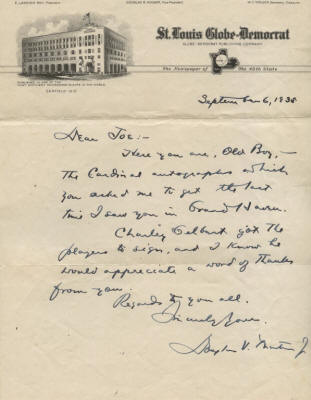 E. LANSING RAY, President
DOUGLAS B. HOUSER, Vice-President
Secretary, Treasurer
St. Louis Globe-Democrat
GLOBE-DEMOCRAT PUBLISHING COMPANY
The Newspaper of the 49th State
PUBLISHED IN ONE OF THE
MOST EFFICIENT NEWSPAPER PLANTS IN THE WORLD
September 6, 1935
Dear Joe:-
Here you are, Old Boy,-
the Cardinal autographs which
you asked me to get the last
time I saw you in Grand Haven.
Charley Gelbert got the
players to sign, and I know he
would appreciate a word of thanks
from you.
Regards to you all.
Sincerely Yours,
V. Martin Jr